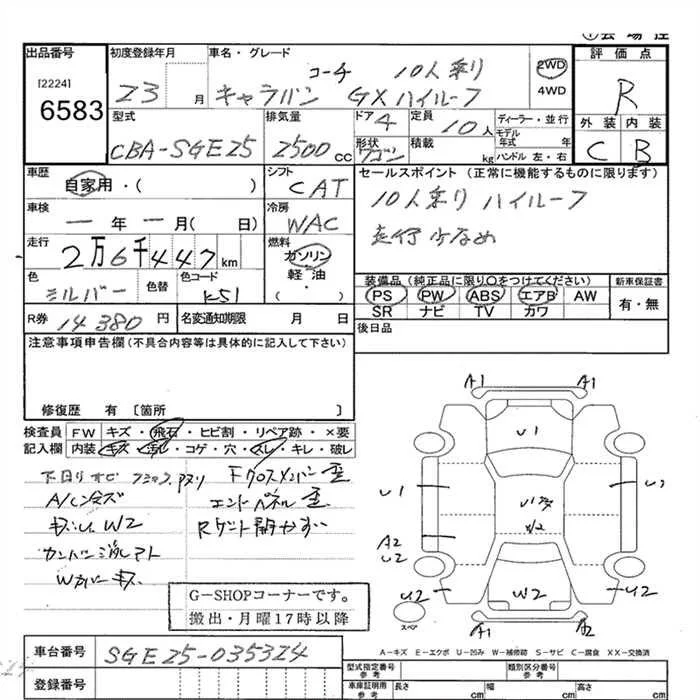 出品番号
[2224]
6583
初度登録年月
23 月
車名・グレード
コーチ 10人乗り
キャラバン GXハイルーフ
2WD
4WD
評価点
R
外装 内装
C B
型式
CBA-SGE25
排気量
2500 cc
ドア 4
形状
ワゴン
定員
10人
積載 kg
ディーラー・並行
モデル年式 年
ハンドル 左・右
車歴
自家用・( )
シフト
CAT
車検
一年一月( 日)
冷房
WAC
走行
2万6千447km
燃料
ガソリン
軽・油
・( )
色
シルバー
色替
色コード
K51
R券 14380円
名変通知期限 月 日
セールスポイント (正常に機能するものに限ります)
10人乗り ハイルーフ
走行少なめ
装備品 (純正品に限り○をつけてください)
PS PW ABS エアB AW
SR ナビ TV カワ
新車保証書
有・無
後日品
注意事項申告欄 (不具合内容等は具体的に記入して下さい)
修復歴 有 [箇所 ]
検査員 FW キズ・飛石・ヒビ割・リペア跡・×要
記入欄 内装 キズ・汚レ・コゲ・穴・スレ・キレ・破レ
下回りサビ
Fクロスメンバー歪
エンドパネル歪
キズ W2
Wカバーキズ
G-SHOPコーナーです。
搬出・月曜17時以降
A1 A1
U1
U1
A2
U2
W2
U2
A1 A2
スペア
A-キズ E-エクボ U-凹み W-補修跡 S-サビ C-腐食 XX-交換済
車台番号 SGE25-035324
登録番号
型式指定番号 参考
類別区分番号 参考
車庫証明用 参考
長さ cm 幅 cm 高さ cm